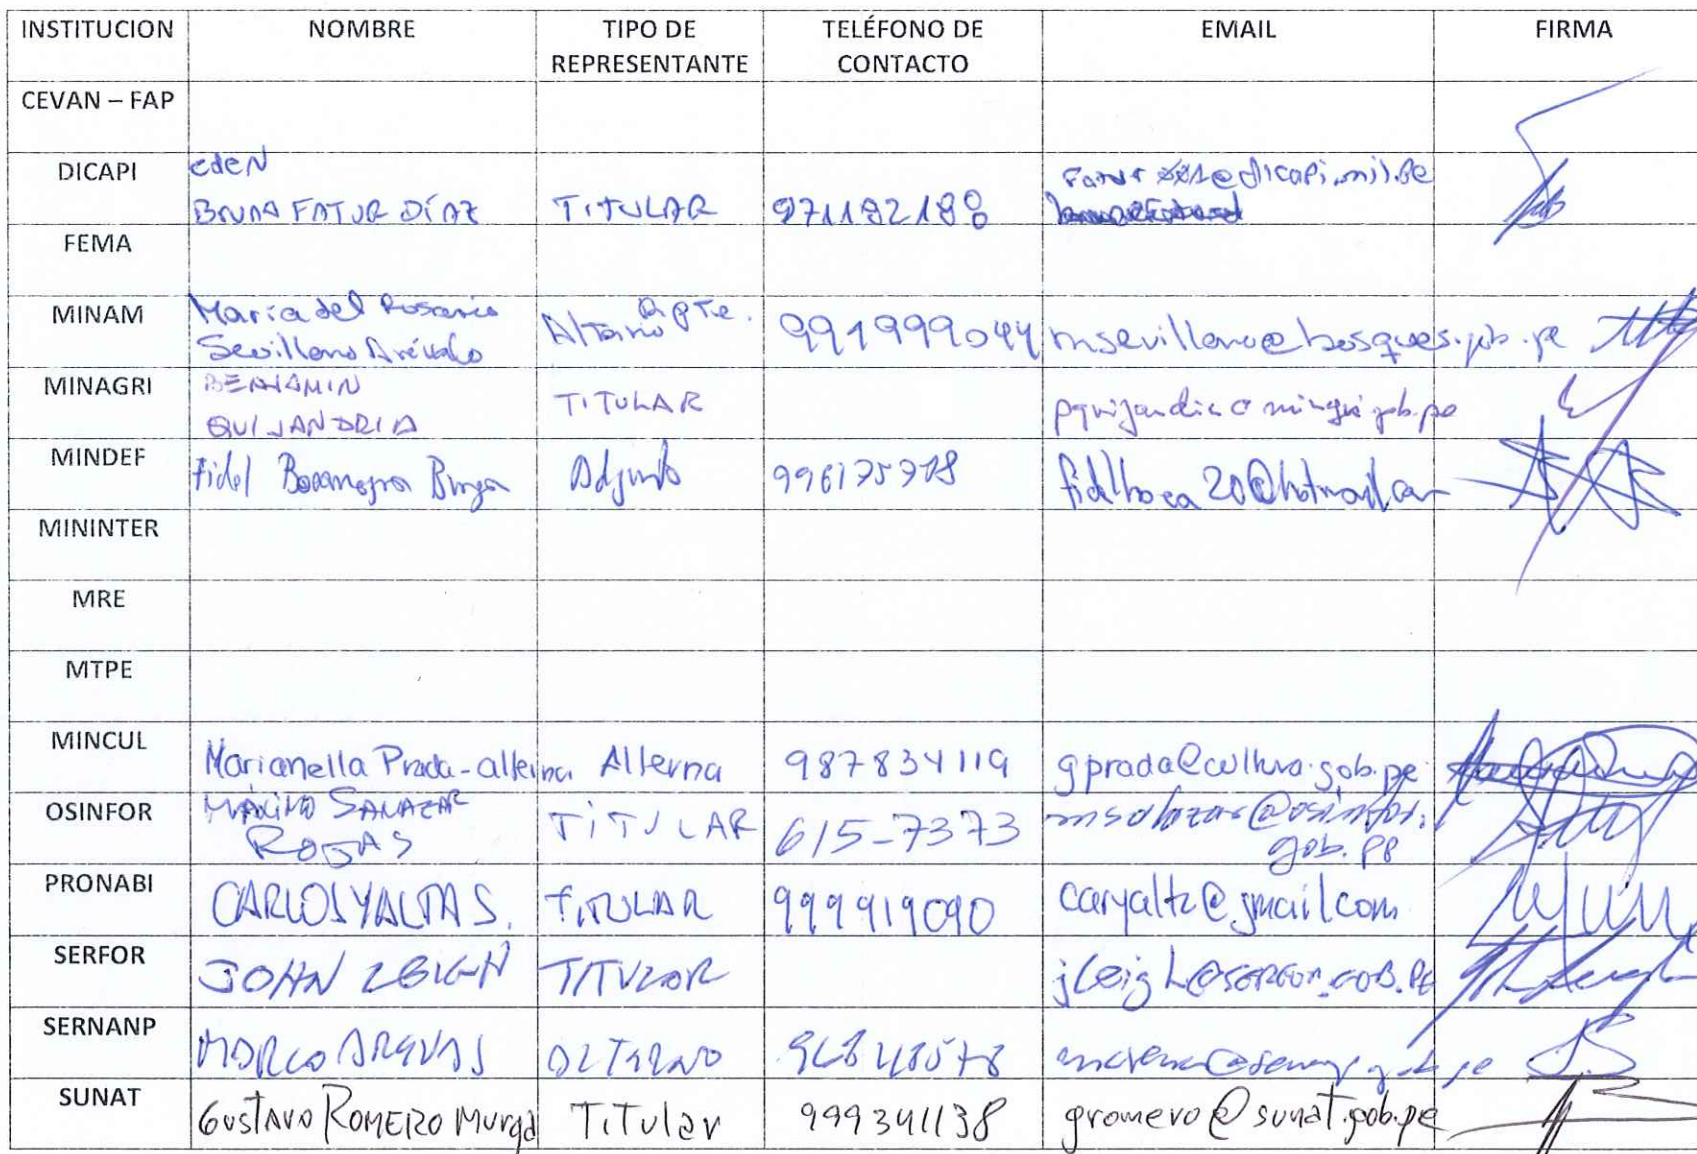 INSTITUCION NOMBRE TIPO DE REPRESENTANTE TELÉFONO DE CONTACTO EMAIL FIRMA
CEVAN – FAP
DICAPI eden
BRUNA FATUR DÍAZ TITULAR 971192188 @dicapi.mil.pe
FEMA
MINAM María del Rosario Alterno Rpte.
Sevillano Arévalo 991999044 msevillano@bosques.gob.pe
MINAGRI BENJAMIN
QUIJANDRIA TITULAR
MINDEF Fidel Bocanegra Adjunto fidelboca20@hotmail.com
MININTER
MRE
MTPE
MINCUL Marianella Prada-alterna Alterna 987834119 gprada@cultura.gob.pe
OSINFOR MÁXIMO SALAZAR
ROJAS TITULAR 615-7373 msalazar@osinfor.
gob.pe
PRONABI CARLOS YALTA S. TITULAR 999919090 caryalta@gmail.com
SERFOR JOHN LEIGH TITULAR jleigh@SERFOR.GOB.PE
SERNANP MARCO ARENAS ALTERNO
SUNAT GUSTAVO ROMERO Murga Titular 999341138 gromero@sunat.gob.pe